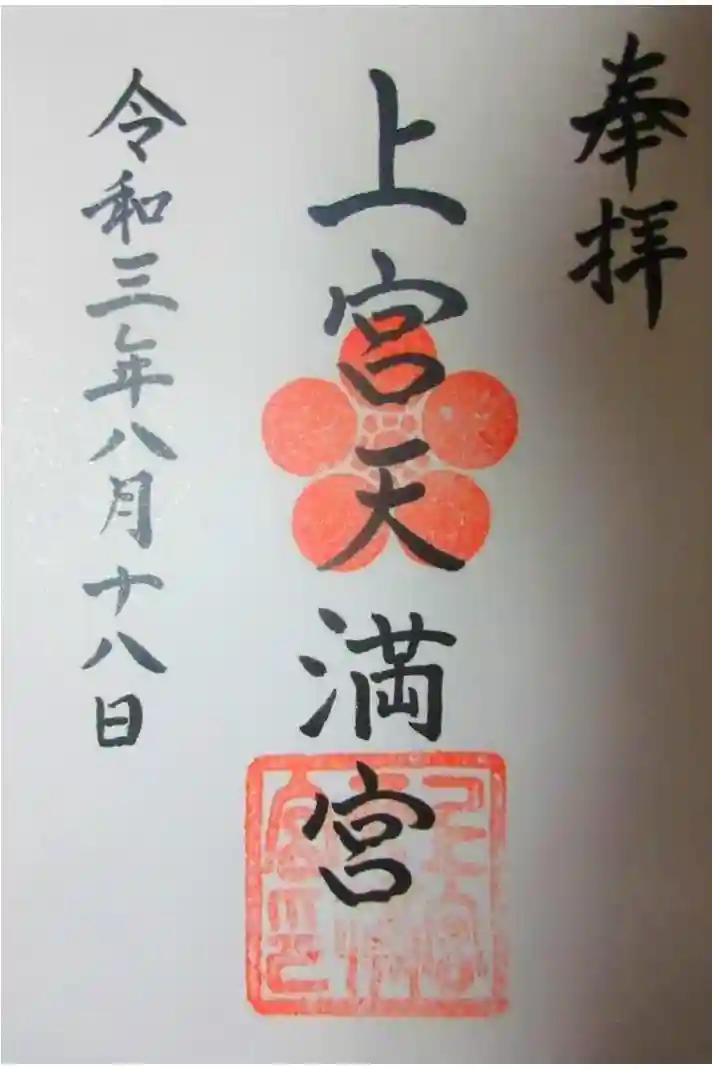 奉拝
上宮天満宮
令和三年八月十八日